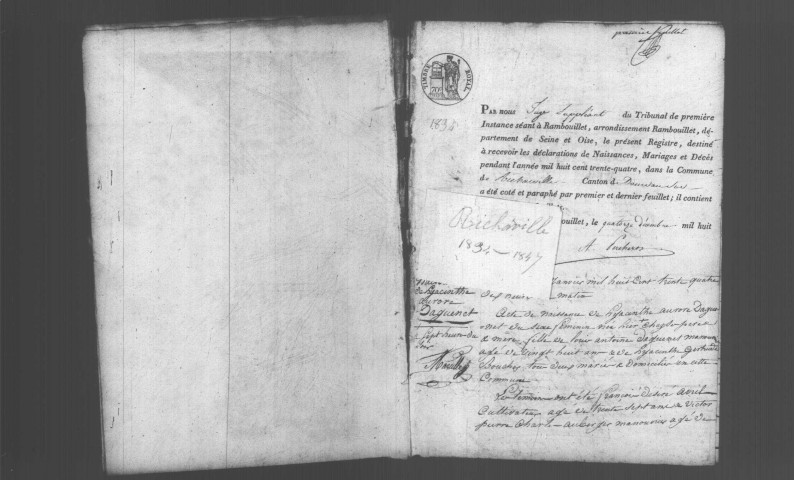 premier feuillet
TIMBRE ROYAL
1834
PAR NOUS Juge Suppléant du Tribunal de première
Instance séant à Rambouillet, arrondissement Rambouillet, dé-
partement de Seine et Oise, le présent Registre, destiné
à recevoir les déclarations de Naissances, Mariages et Décès
pendant l'année mil huit cent trente-quatre, dans la Commune
de Richarville Canton de Dourdan Sud
a été coté et paraphé par premier et dernier feuillet; il contient
ouillet, le quatorze décembre mil huit
Richarville
1834-1847
janvier mil huit Cent trente quatre
dix heures matin
de hyacinthe
aurore
Daguenet
Acte de naissance de hyacinthe aurore Dague-
net de sexe féminin née hier
fille de louis antoine Daguenet manouv
agé de vingt huit ans & de hyacinthe
Boucher tous deux marié & domicilié en cette
Commune
à sept heures du
soir
Les témoins ont été françois desiré avril
Cultivateur agé de trente sept ans & Victor
pierre Charle manouvrier agé de